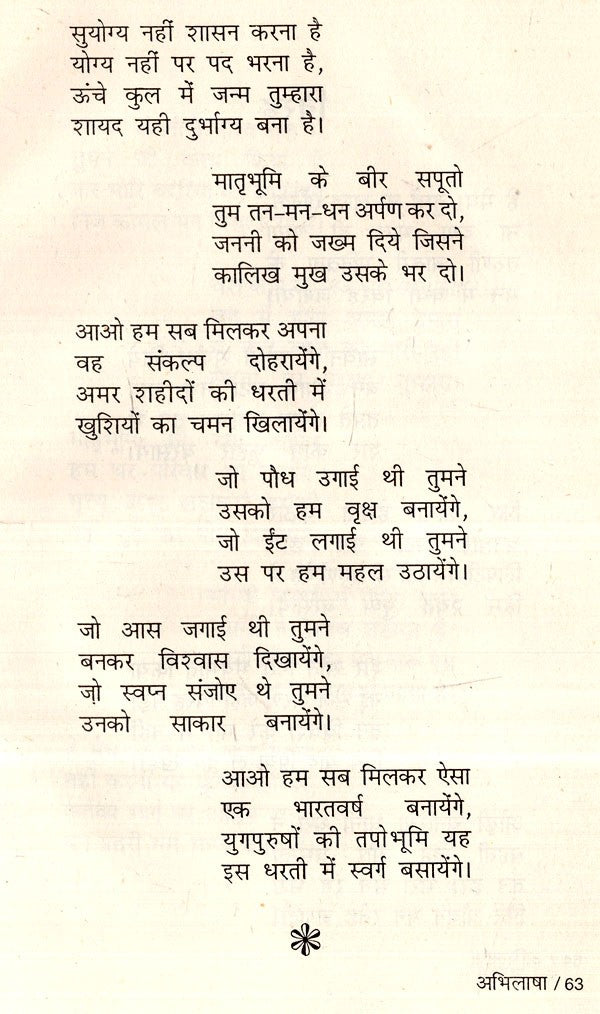 सुयोग्य नहीं शासन करना है
योग्य नहीं पर पद भरना है,
ऊंचे कुल में जन्म तुम्हारा
शायद यही दुर्भाग्य बना है।
मातृभूमि के बीर सपूतो
तुम तन-मन-धन अर्पण कर दो,
जननी को जख्म दिये जिसने
कालिख मुख उसके भर दो।
आओ हम सब मिलकर अपना
वह संकल्प दोहरायेंगे,
अमर शहीदों की धरती में
खुशियों का चमन खिलायेंगे।
जो पौध उगाई थी तुमने
उसको हम वृक्ष बनायेंगे,
जो ईंट लगाई थी तुमने
उस पर हम महल उठायेंगे।
जो आस जगाई थी तुमने
बनकर विश्वास दिखायेंगे,
जो स्वप्न संजोए थे तुमने
उनको साकार बनायेंगे।
आओ हम सब मिलकर ऐसा
एक भारतवर्ष बनायेंगे,
युगपुरुषों की तपोभूमि यह
इस धरती में स्वर्ग बसायेंगे।
अभिलाषा / 63